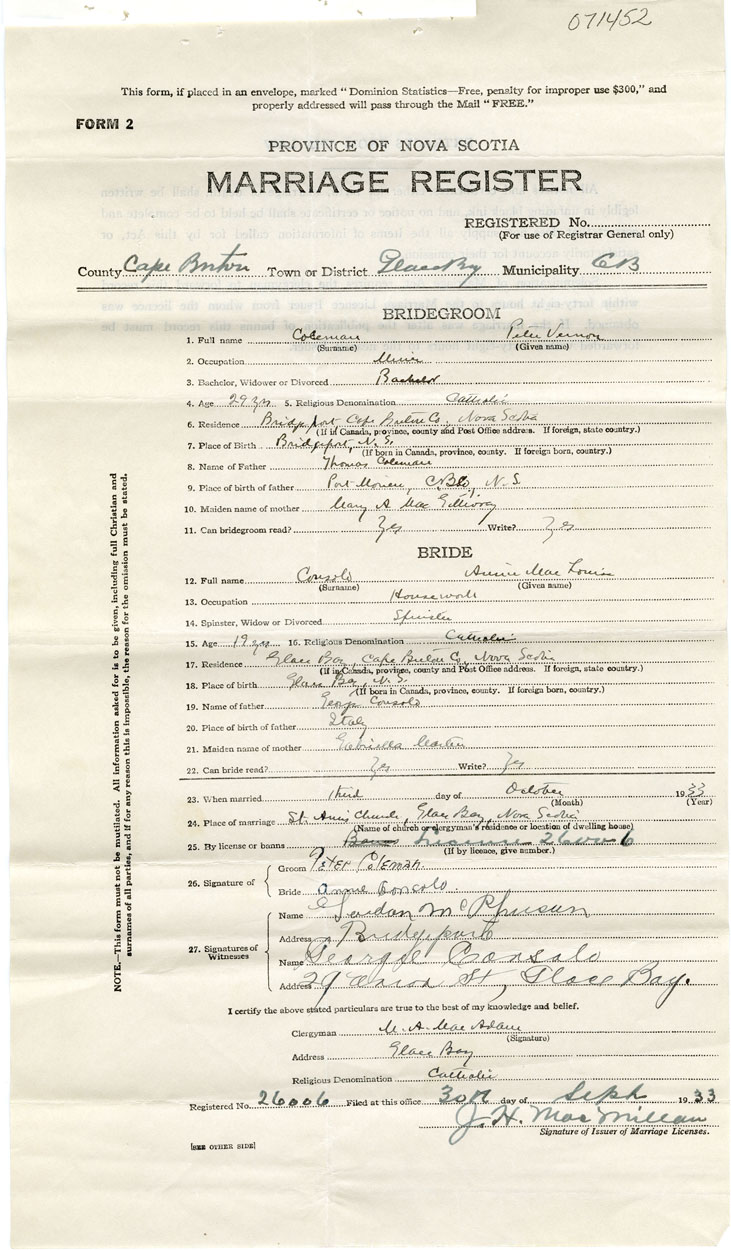 071452
This form, if placed in an envelope, marked "Dominion Statistics—Free, penalty for improper use $300," and
properly addressed will pass through the Mail "FREE."
FORM 2
PROVINCE OF NOVA SCOTIA
MARRIAGE REGISTER
REGISTERED No.
(For use of Registrar General only)
County Cape Breton Town or District Glace Bay Municipality CB
BRIDEGROOM
1. Full name Coleman Peter Vernon
(Surname) (Given name)
2. Occupation Miner
3. Bachelor, Widower or Divorced Bachelor
4. Age 29 yrs 5. Religious Denomination Catholic
6. Residence Bridgeport Cape Breton Co., Nova Scotia
(If in Canada, province, county and Post Office address. If foreign, state country.)
7. Place of Birth Bridgeport, N.S.
(If born in Canada, province, county. If foreign born, country.)
8. Name of Father Thomas Coleman
9. Place of birth of father Port Morien, CBCo, N.S.
10. Maiden name of mother Mary A Mac Gillivray
11. Can bridegroom read? Yes Write? Yes
BRIDE
12. Full name Consolo Annie Mae Louise
(Surname) (Given name)
13. Occupation Housework
14. Spinster, Widow or Divorced Spinster
15. Age 19 yrs 16. Religious Denomination Catholic
17. Residence Glace Bay, Cape Breton Co, Nova Scotia
(If in Canada, province, county and Post Office address. If foreign, state country.)
18. Place of birth Glace Bay, N.S.
(If born in Canada, province, county. If foreign born, country.)
19. Name of father George Consolo
20. Place of birth of father Italy
21. Maiden name of mother Martin
22. Can bride read? Yes Write? Yes
23. When married third day of October 1933
(Month) (Year)
24. Place of marriage St. Anns Church, Glace Bay, Nova Scotia
(Name of church or clergyman's residence or location of dwelling house)
25. By license or banns Banns License 26006
(If by licence, give number.)
26. Signature of
Groom Peter Coleman.
Bride Annie Consolo
27. Signatures of Witnesses
Name Gordon McPherson
Address Bridgeport
Name George Consolo
Address 29 Union St, Glace Bay.
I certify the above stated particulars are true to the best of my knowledge and belief.
Clergyman M. A. Mac Adam
(Signature)
Address Glace Bay
Religious Denomination Catholic
Registered No. 26006 Filed at this office 30th day of Sept 1933
J. H. MacMillan
Signature of Issuer of Marriage Licenses.
[SEE OTHER SIDE]
NOTE.—This form must not be mutilated. All information asked for is to be given, including full Christian and
surnames of all parties, and if for any reason this is impossible, the reason for the omission must be stated.